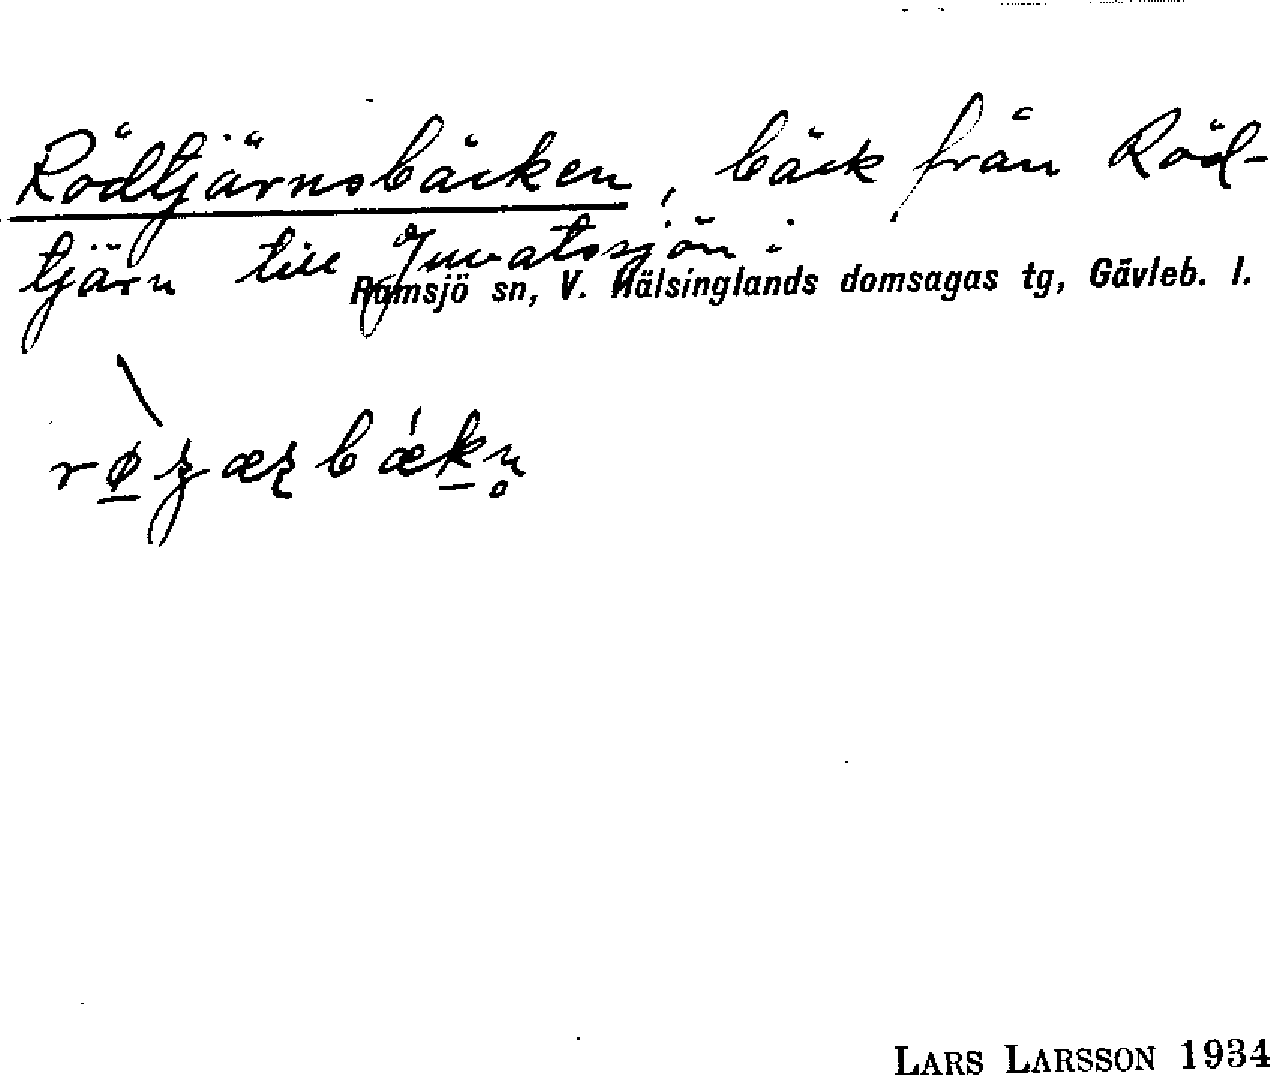 Rödtjärnsbäcken, bäck från Röd-
tjärn till Juvatssjön:
Ramsjö sn, V. Hälsinglands domsagas tg, Gävleb. l.
LARS LARSSON 1934